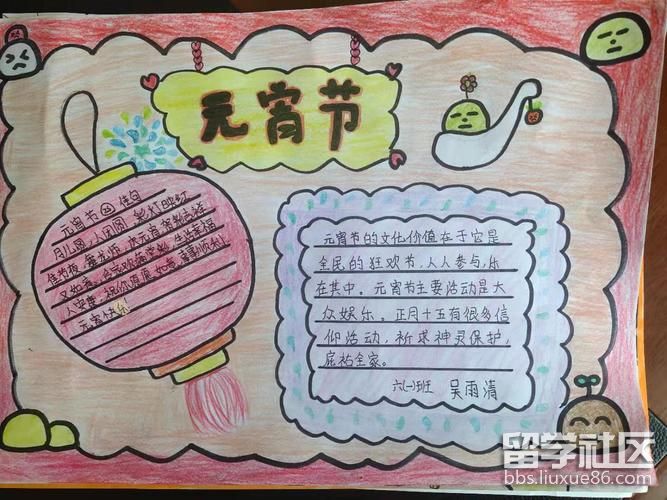 元宵节
元宵节 佳句
月儿圆,小团圆 彩灯映红
佳节夜,舞龙师,庆元宵
又如意
人安康,祝你
元宵快乐!
元宵节的文化价值在于它是
全民的狂欢节,人人参与,乐
在其中。元宵节主要活动是大
众娱乐。正月十五有很多信
仰活动,祈求神灵保护,
庇祐全家。
六(一)班 吴雨清
留学社区
bbs.liuxue86.com